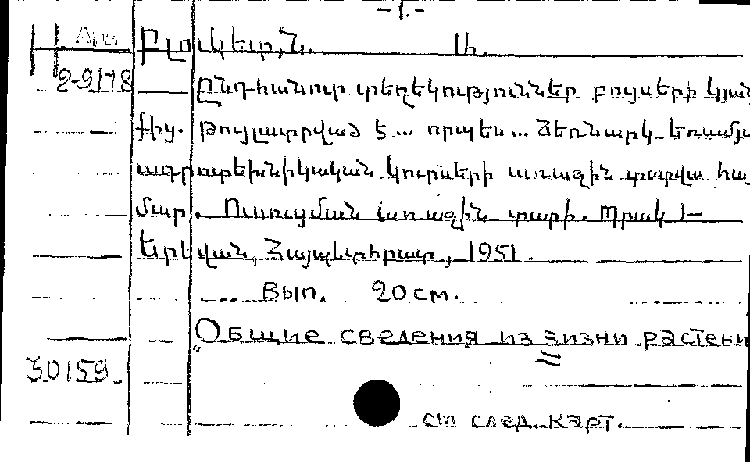 -1.-
Հա Բլոկետ, Ն. Ա.
2-9178 Ընդհանուր տեղեկություններ բույսերի կյան
քից. Թույլատրված է... որպես... Ձեռնարկ եռամյա
ագրոտեխնիկական կուրսերի առաջին տարվա հա
մար. Ուսուցման առաջին տարի. Պրակ 1-
Երեվան, Հայպետհրատ, 1951.
... Вып. 20 см.
Общие сведения из жизни растени
30159.
см след. карт.